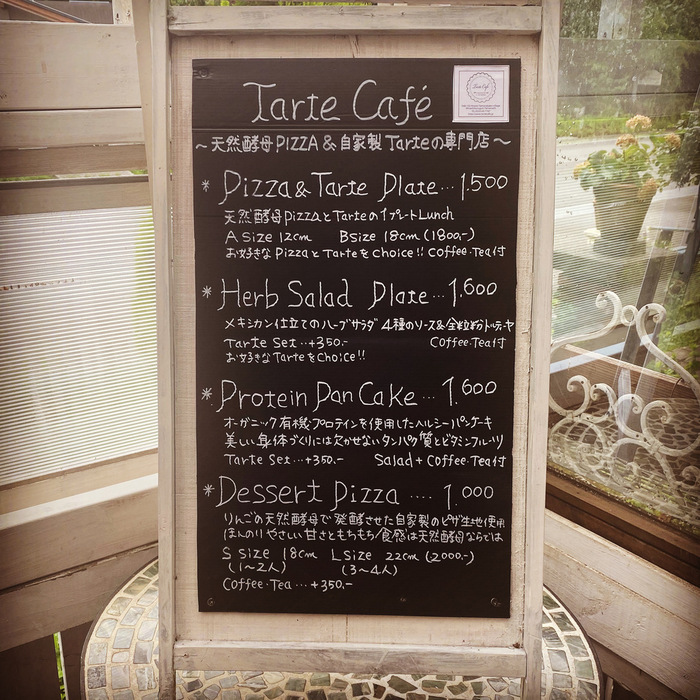 Tarte Café
～天然酵母PIZZA＆自家製Tarteの専門店～
* Pizza&Tarte Plate… 1,500
天然酵母PizzaとTarteの1プレートLunch
A Size 12cm B Size 18cm (1800.-)
お好きなPizzaとTarteをchoice!! Coffee・Tea付
* Herb Salad Plate… 1,600
メキシカン仕立てのハーブサラダ 4種のソース&全粒粉トルティーヤ
Tarte Set…+350.- Coffee・Tea付
お好きなTarteをChoice!!
* Protein Pan Cake… 1,600
オーガニック有機プロテインを使用したヘルシーパンケーキ
美しい身体づくりには欠かせないタンパク質とビタミンフルーツ
Tarte Set…+350.- Salad + Coffee・Tea付
* Dessert Pizza .... 1,000
りんごの天然酵母で発酵させた自家製のピザ生地使用
ほんのりやさしい甘さともちもち食感は天然酵母ならでは
S size 18cm L size 22cm (2000.-)
(1～2人) (3～4人)
Coffee・Tea…+350.-